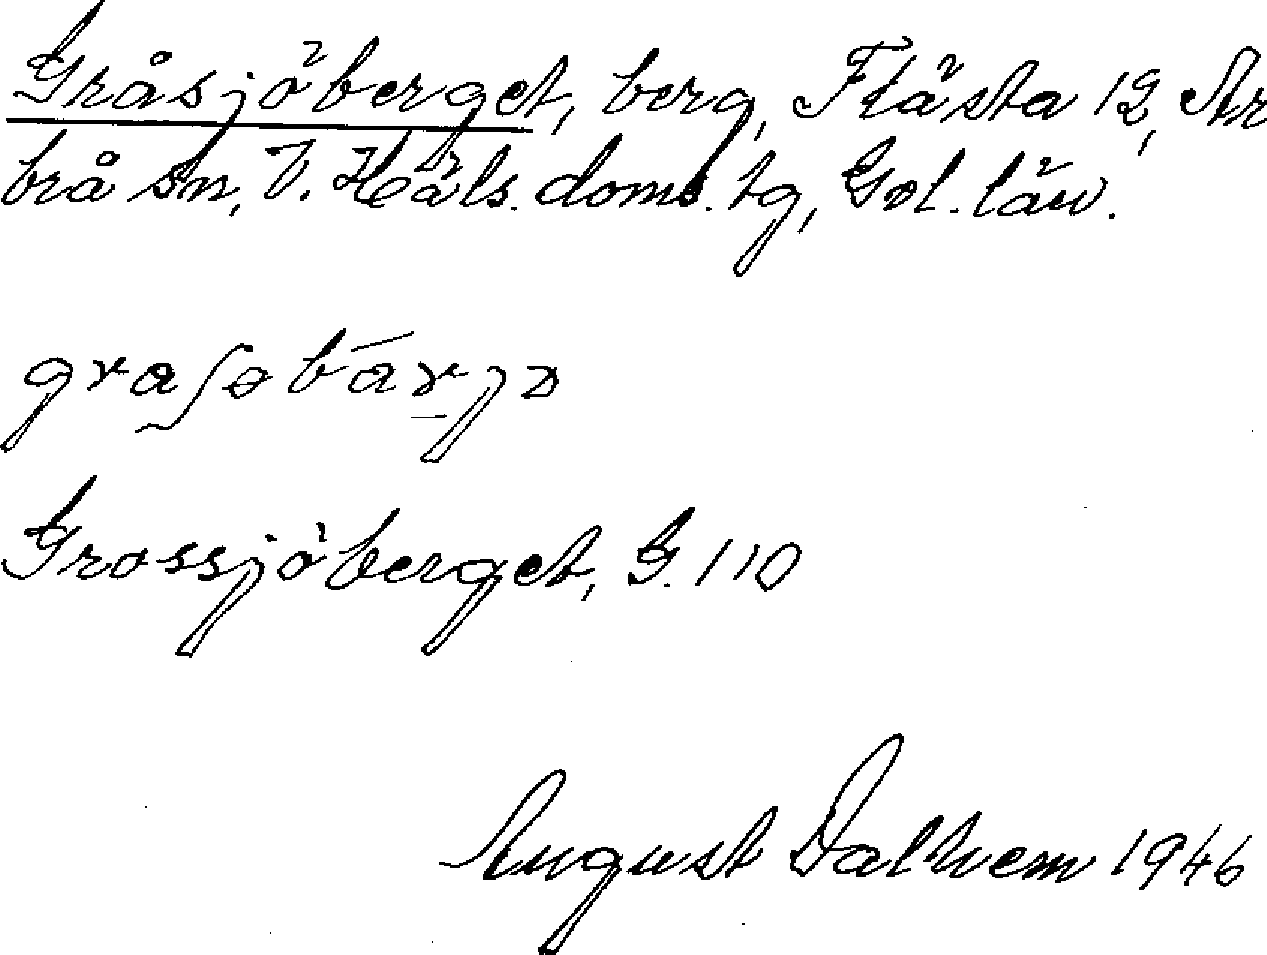 Gråsjöberget, berg, Flästa 12, Ar
brå sn, V. Häls. doms. tg, Gvl. län.
Grossjöberget, G. 110
August Dalhem 1946